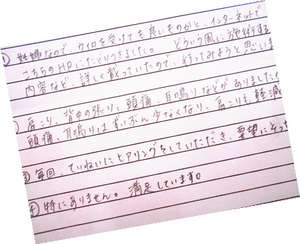 妊婦なので、カイロを受けても良いものかと、インターネットで
こちらのHPにたどりつきました。どういう風に施術する
内容など、詳しく載っていたので、行ってみようと思いま
肩こり、背中の張り、頭痛、耳鳴りなどがありましたが
頭痛、耳鳴りはずいぶん少なくなり、肩こりも軽減
③ 毎回、ていねいにヒアリングをしていただき、要望にそっ
④ 特にありません。満足しています。